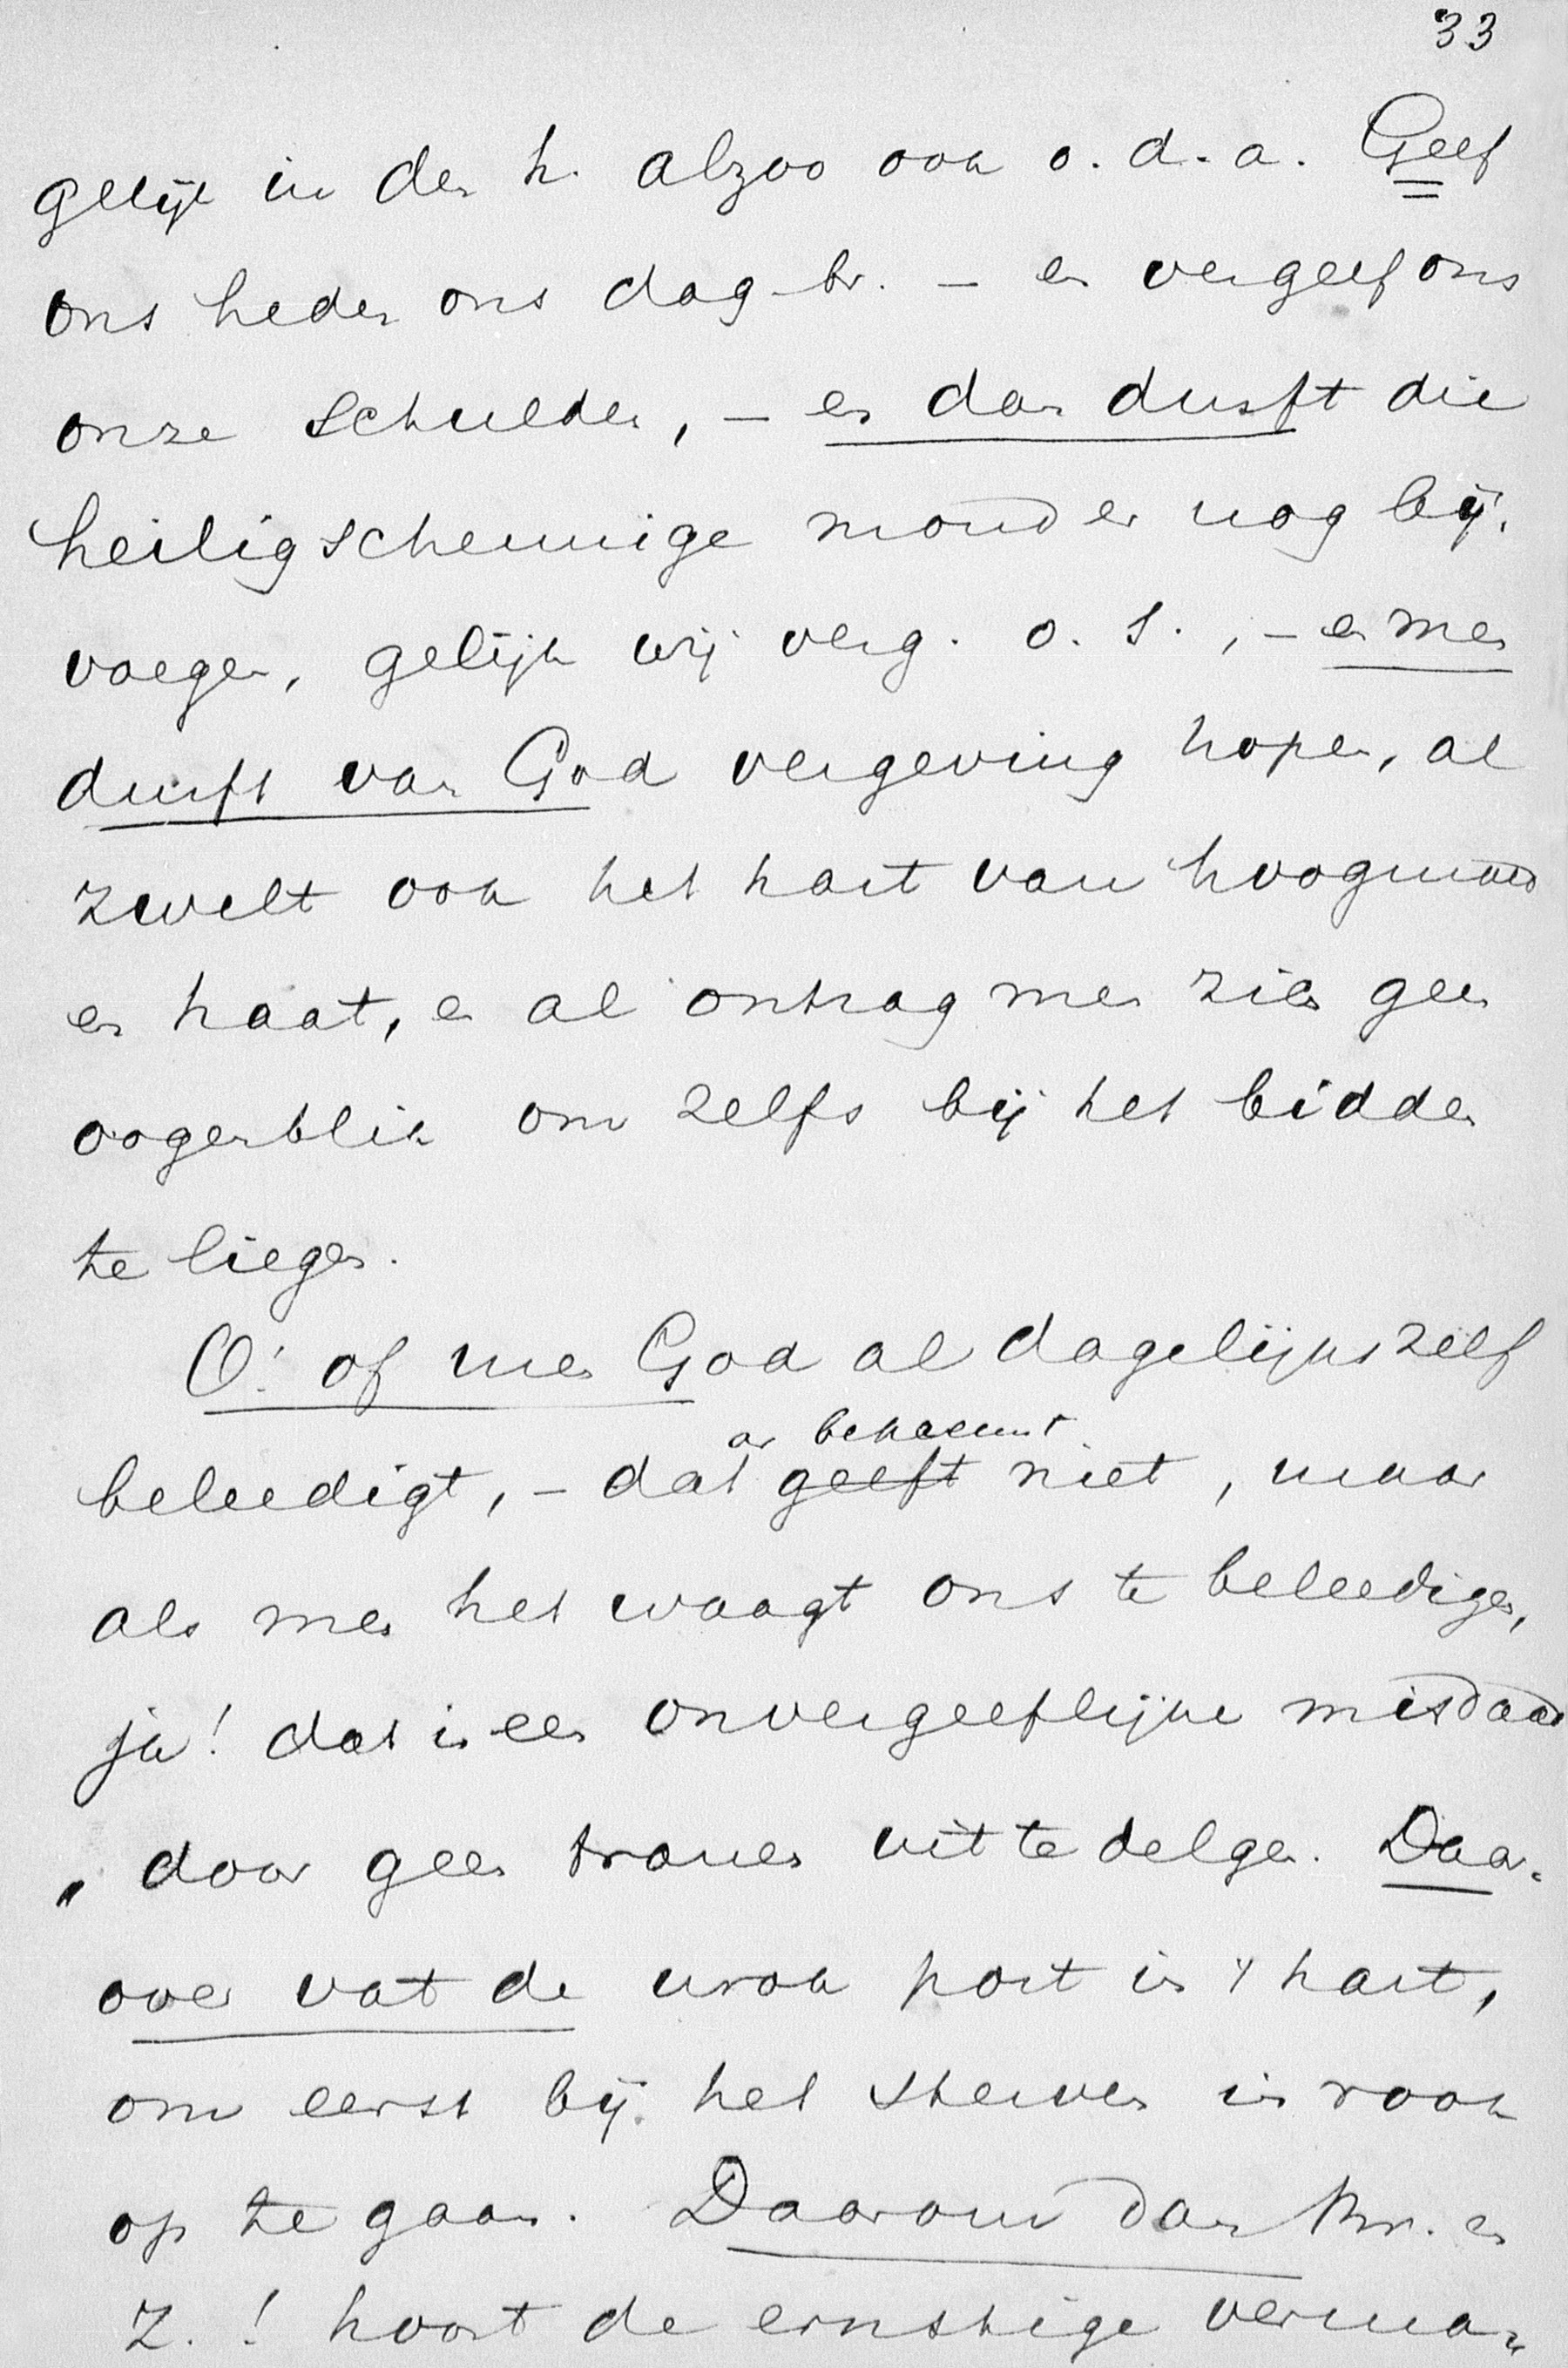 33
gelijk in den h. alzoo ook o. d. a. Geef
ons heden ons dag. br. – en vergeef ons
onze schulden, – en dan durft die
heiligschennige mond er nog bij.
voegen, gelijk wij verg. o. s., – en men
durft van God vergeving hopen, al
zwelt ook het hart van hoogmoed
en haat, en al ontzag men zich geen
oogenblik om zelfs bij het bidden
te liegen.
O! of men God al dagelijks zelf
beleedigt, – dat geeft niet, maar
als men het waagt ons te beleedigen,
ja! dat is een onvergeeflijke misdaad
door geen tranen uit te delgen. Daar-
over vat de wrok post in 't hart,
om eerst bij het sterven in rook
op te gaan. Daarom dan Br. en
Z.! hoort de ernstige verma-